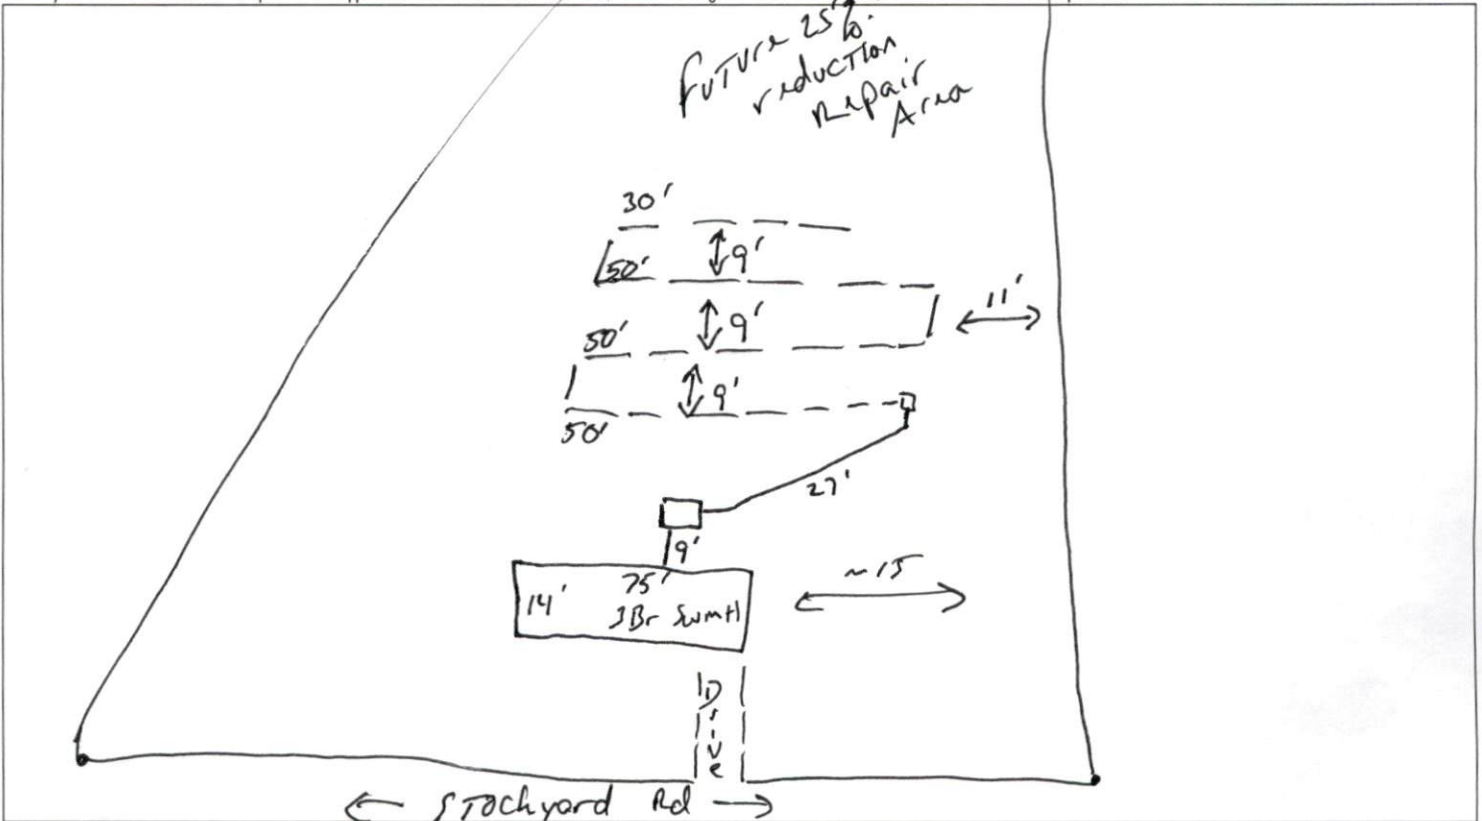 Future 25%
reduction
Repair
Area
30'
9'
50'
9'
11'
50'
9'
50'
27'
9'
~15
75'
14'
3Br Swmh
Drive
Stockyard Rd